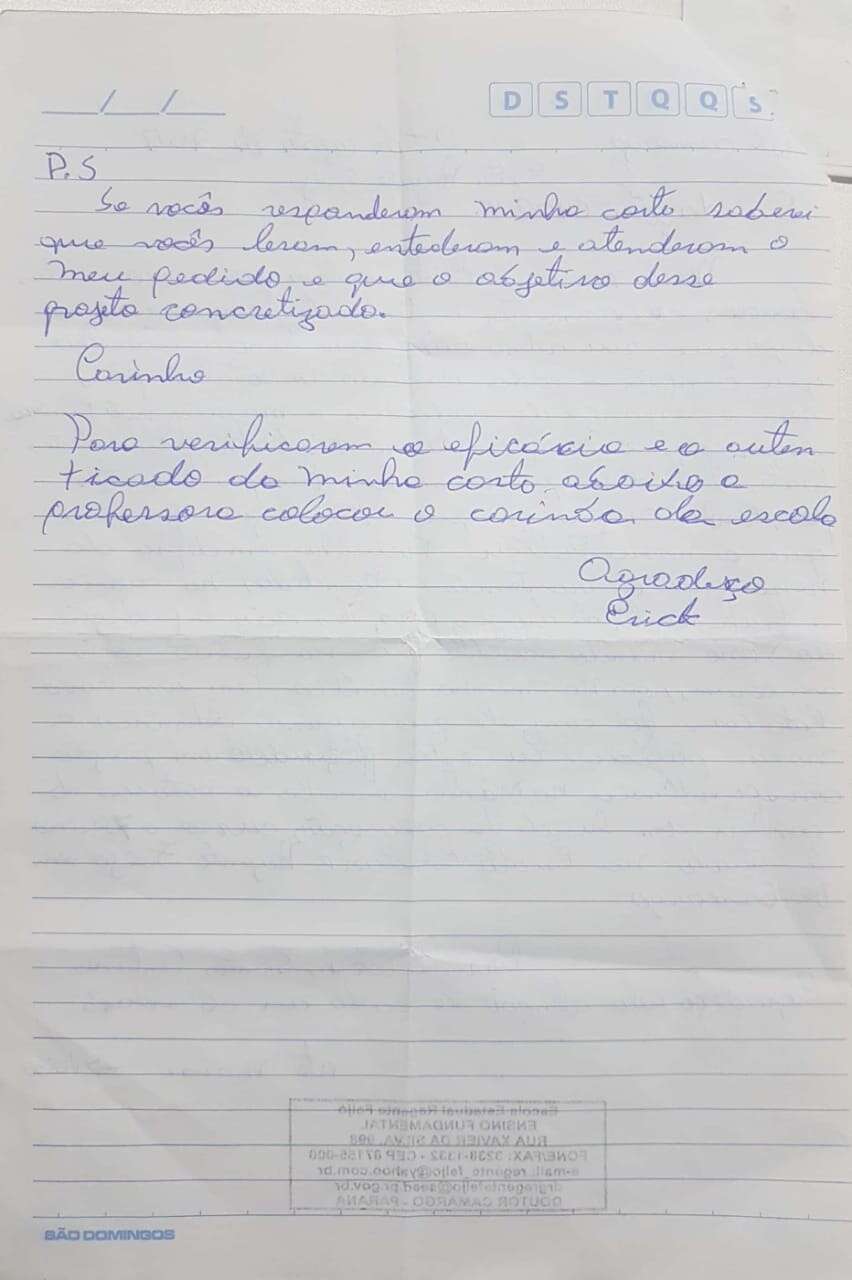 __/__/__
D S T Q Q S
P.S
Se vocês responderem minha carta saberei
que vocês leram, entederam e atenderam o
meu pedido, e que o objetivo desse
projeto concretizado.
Carinho
Para verificarem a eficárcia e a auten
ticado da minha carta, abaixo a
professora colocou o carimbo da escola
Agradeço
Erick
Escola Estadual Regente Feijó
ENSINO FUNDAMENTAL
RUA XAVIER DA SILVA, 998
FONE/FAX: 3238-1332 - CEP 87155-000
DOUTOR CAMARGO - PARANÁ
SÃO DOMINGOS